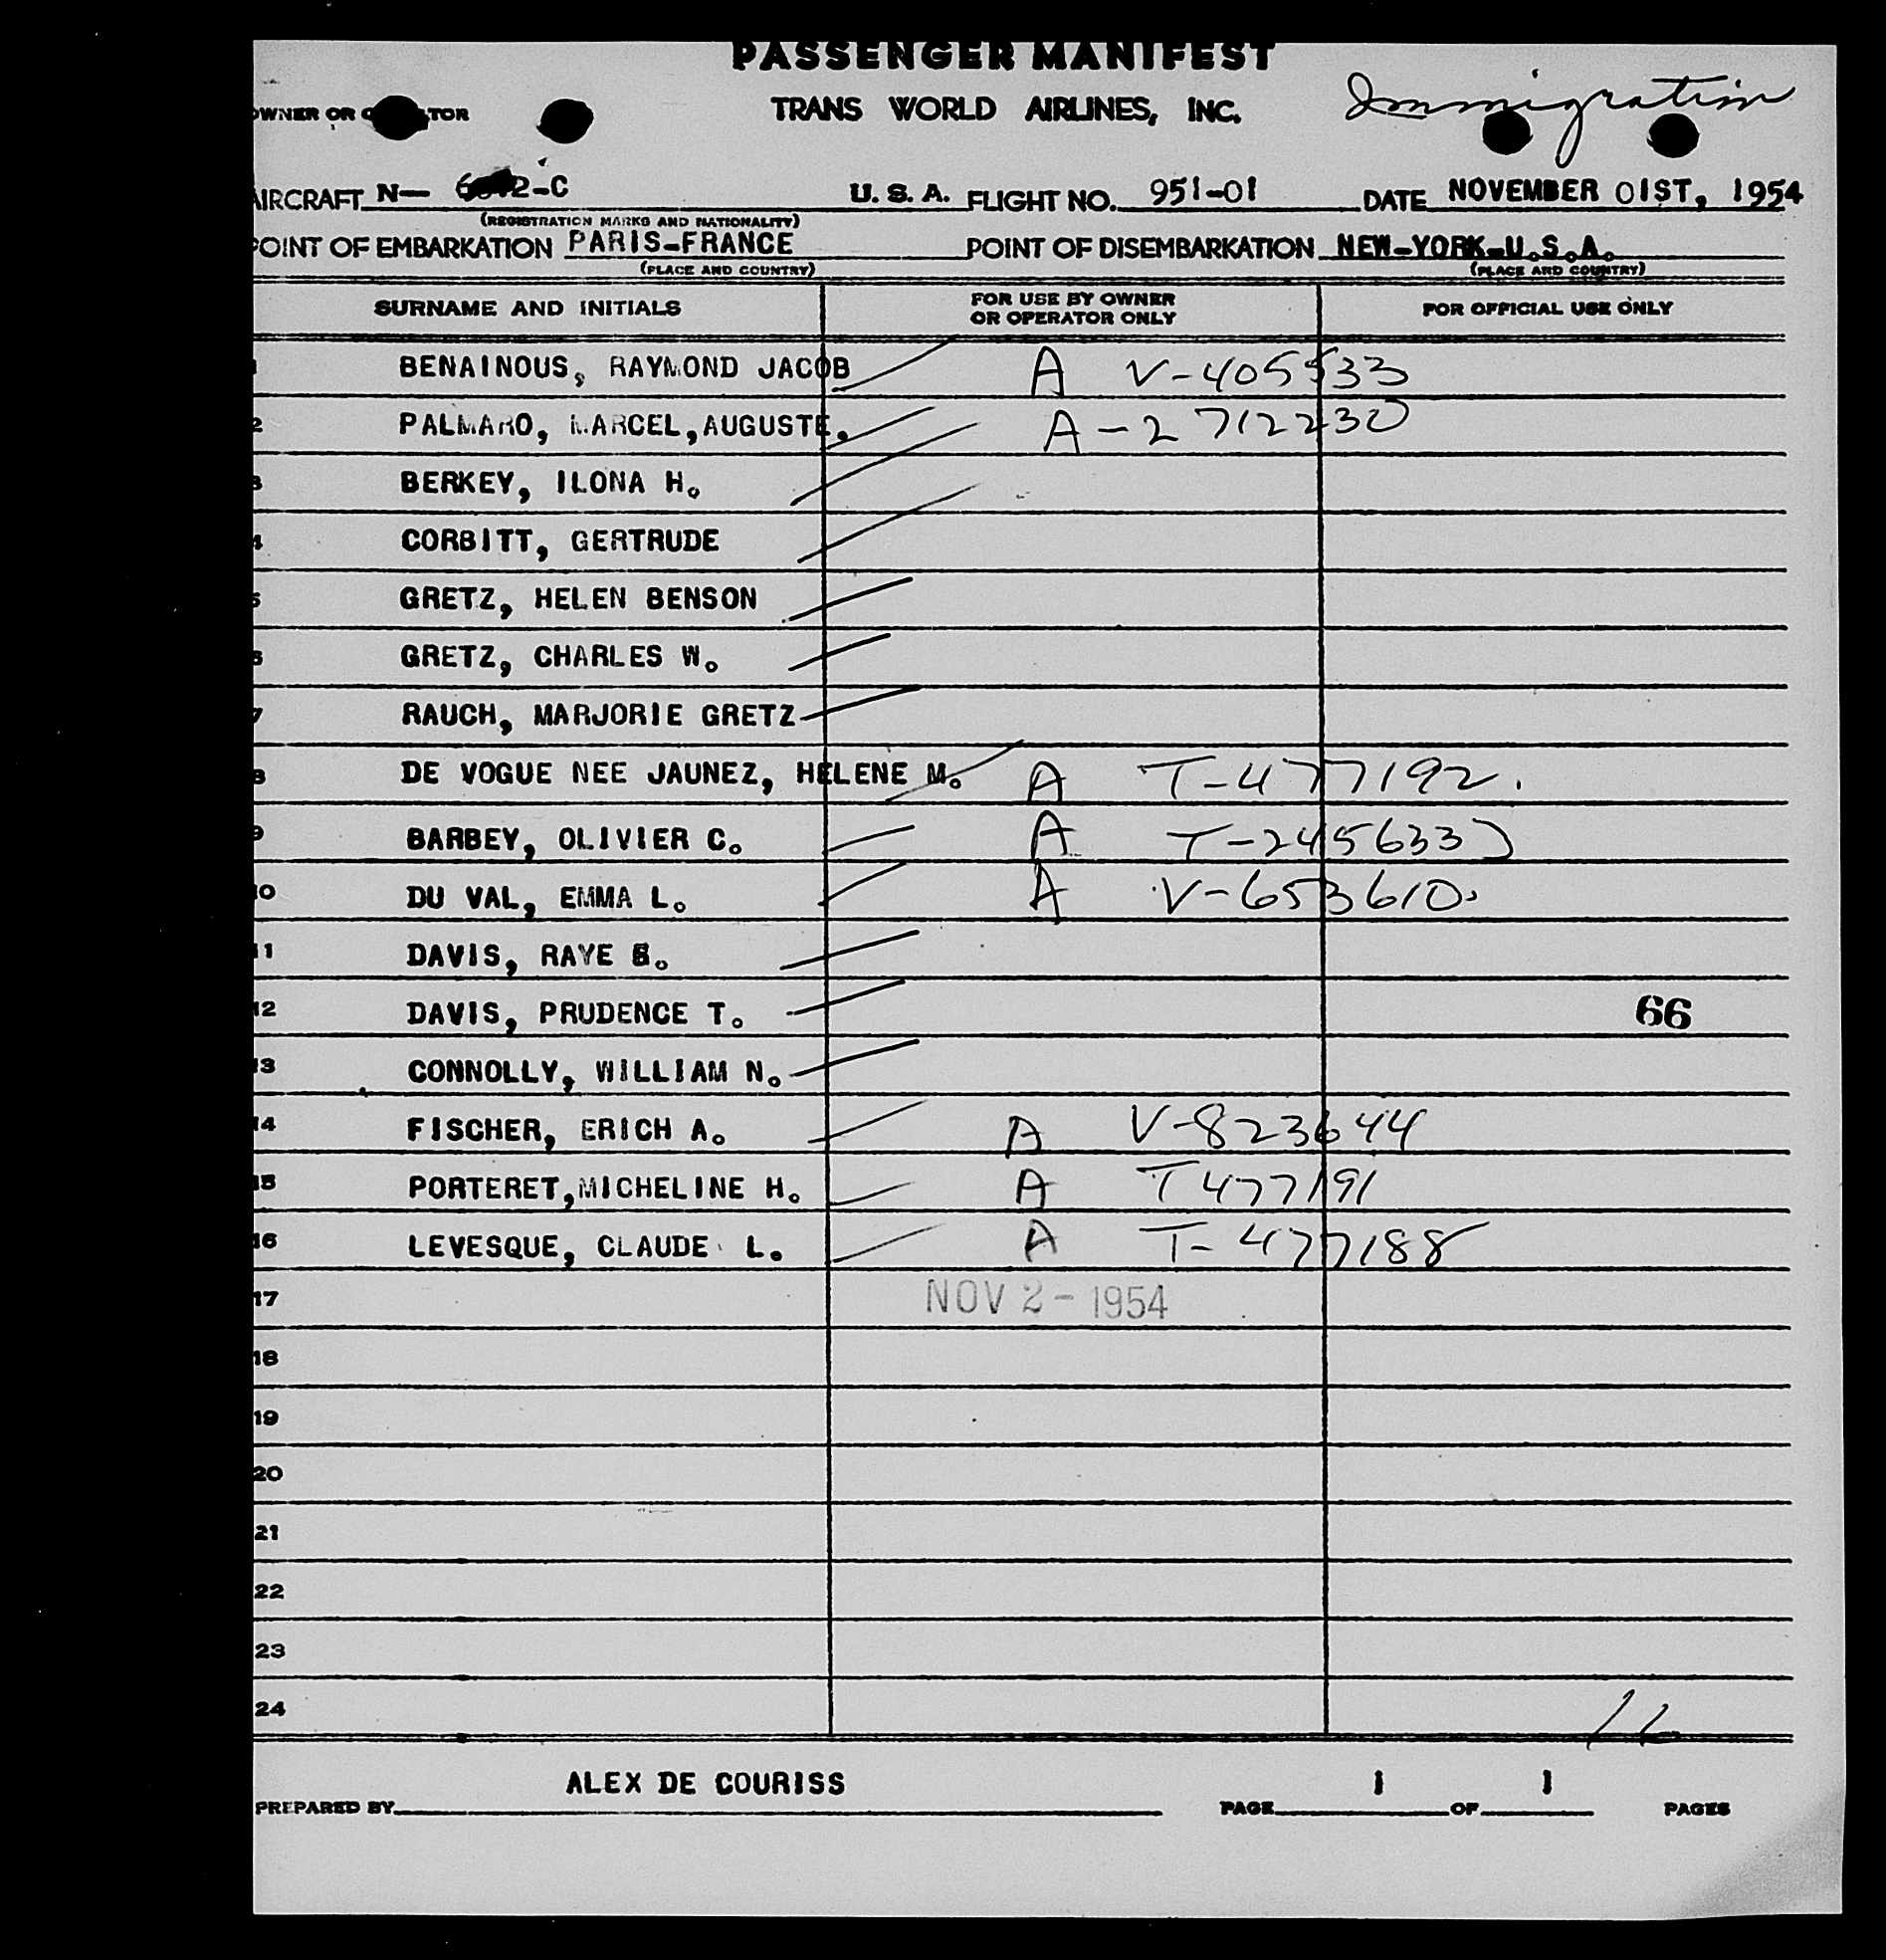 PASSENGER MANIFEST
OWNER OR OPERATOR TRANS WORLD AIRLINES, INC. Immigration
AIRCRAFT N- 2-C U. S. A. FLIGHT NO. 951-01 DATE NOVEMBER 01ST, 1954
(REGISTRATION MARKS AND NATIONALITY)
POINT OF EMBARKATION PARIS-FRANCE POINT OF DISEMBARKATION NEW-YORK-U.S.A.
(PLACE AND COUNTRY) (PLACE AND COUNTRY)
SURNAME AND INITIALS FOR USE BY OWNER OR OPERATOR ONLY FOR OFFICIAL USE ONLY
1 BENAINOUS, RAYMOND JACOB A V-405533
2 PALMARO, MARCEL,AUGUSTE. A-2712230
3 BERKEY, ILONA H.
4 CORBITT, GERTRUDE
5 GRETZ, HELEN BENSON
6 GRETZ, CHARLES W.
7 RAUCH, MARJORIE GRETZ
8 DE VOGUE NEE JAUNEZ, HELENE M. A T-477192.
9 BARBEY, OLIVIER C. A T-245633
10 DU VAL, EMMA L. A V-653610.
11 DAVIS, RAYE S.
12 DAVIS, PRUDENCE T. 66
13 CONNOLLY, WILLIAM N.
14 FISCHER, ERICH A. A V-823644
15 PORTERET,MICHELINE H. A T477191
16 LEVESQUE, CLAUDE L. A T-477188
17 NOV 2-1954
18
19
20
21
22
23
24
ALEX DE COURISS 1 1
PREPARED BY PAGE OF PAGES